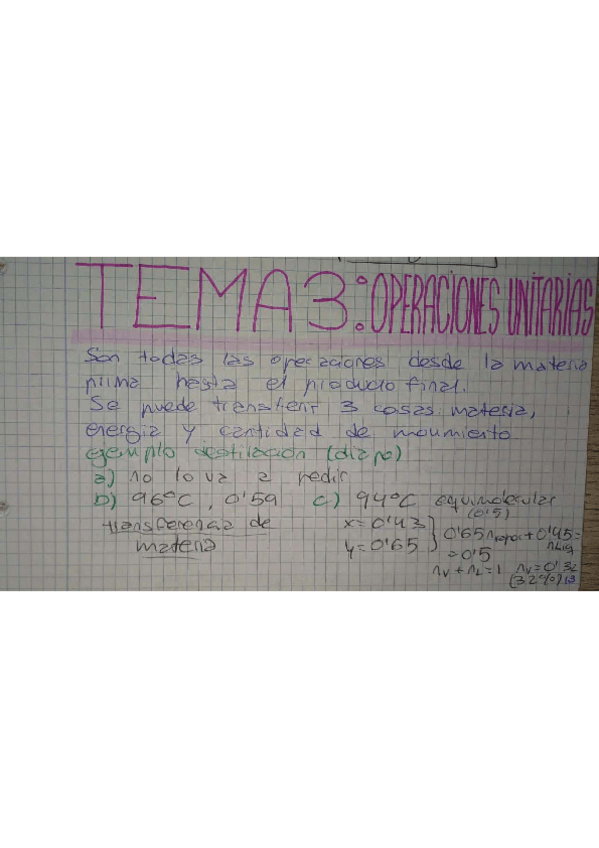 TEMA 3: OPERACIONES UNITARIAS
Son todas las operaciones desde la materia
prima hasta el producto final.
Se puede transferir 3 cosas materia,
energía y cantidad de movimiento
ejemplo destilación (diapo)
a) no lo va a pedir
b) 96ºC, 0'59 c) 94ºC equimolecular
(0'5)
transferencia de
materia
x=0'43
y=0'65
0'65 nvapor + 0'45 =
nLiq
=0'5
nv + nL = 1 nv=0'32
(32%)